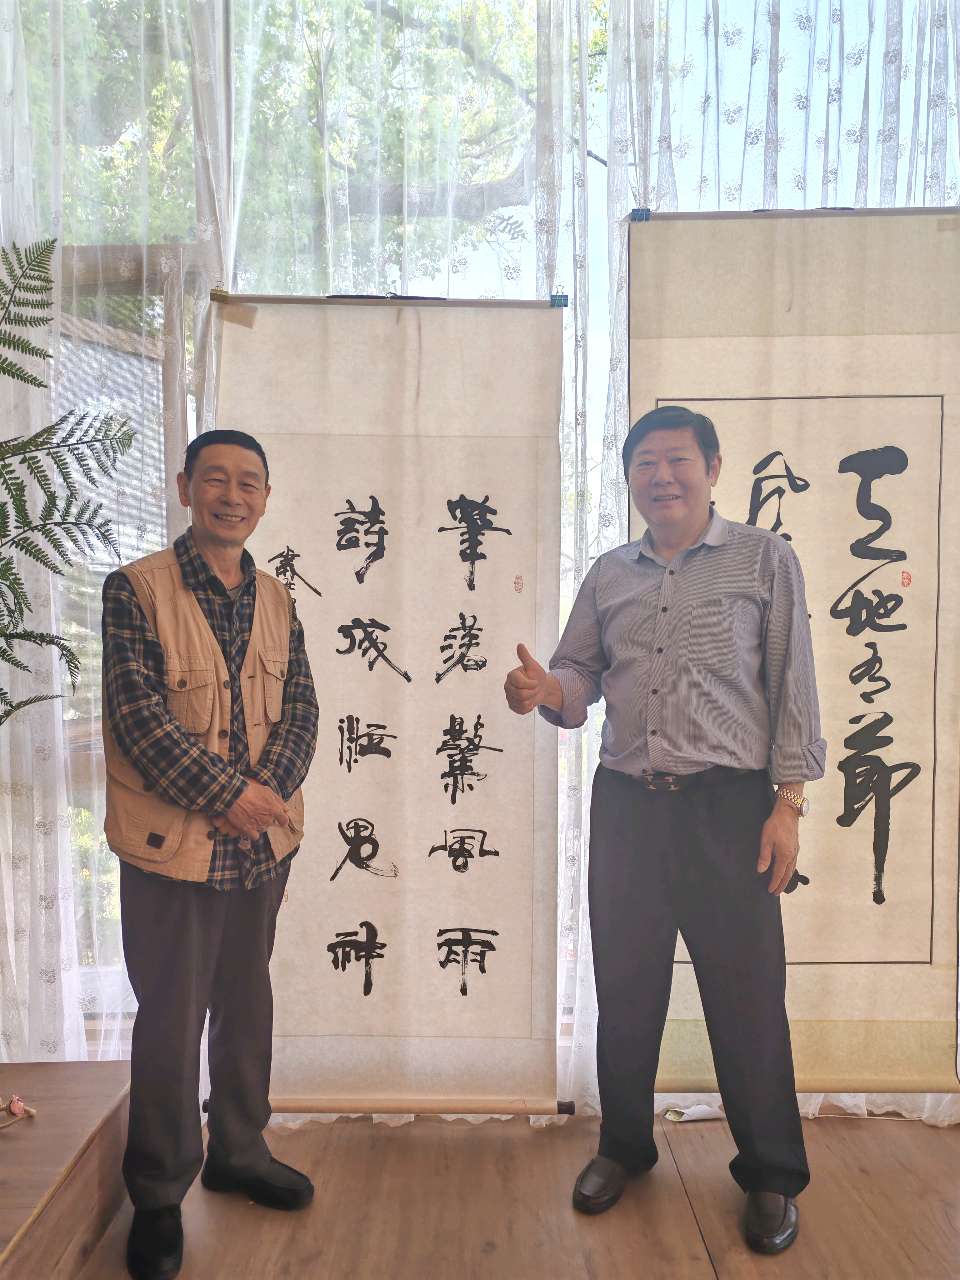 筆落驚風雨
詩成泣鬼神
天地有節
風